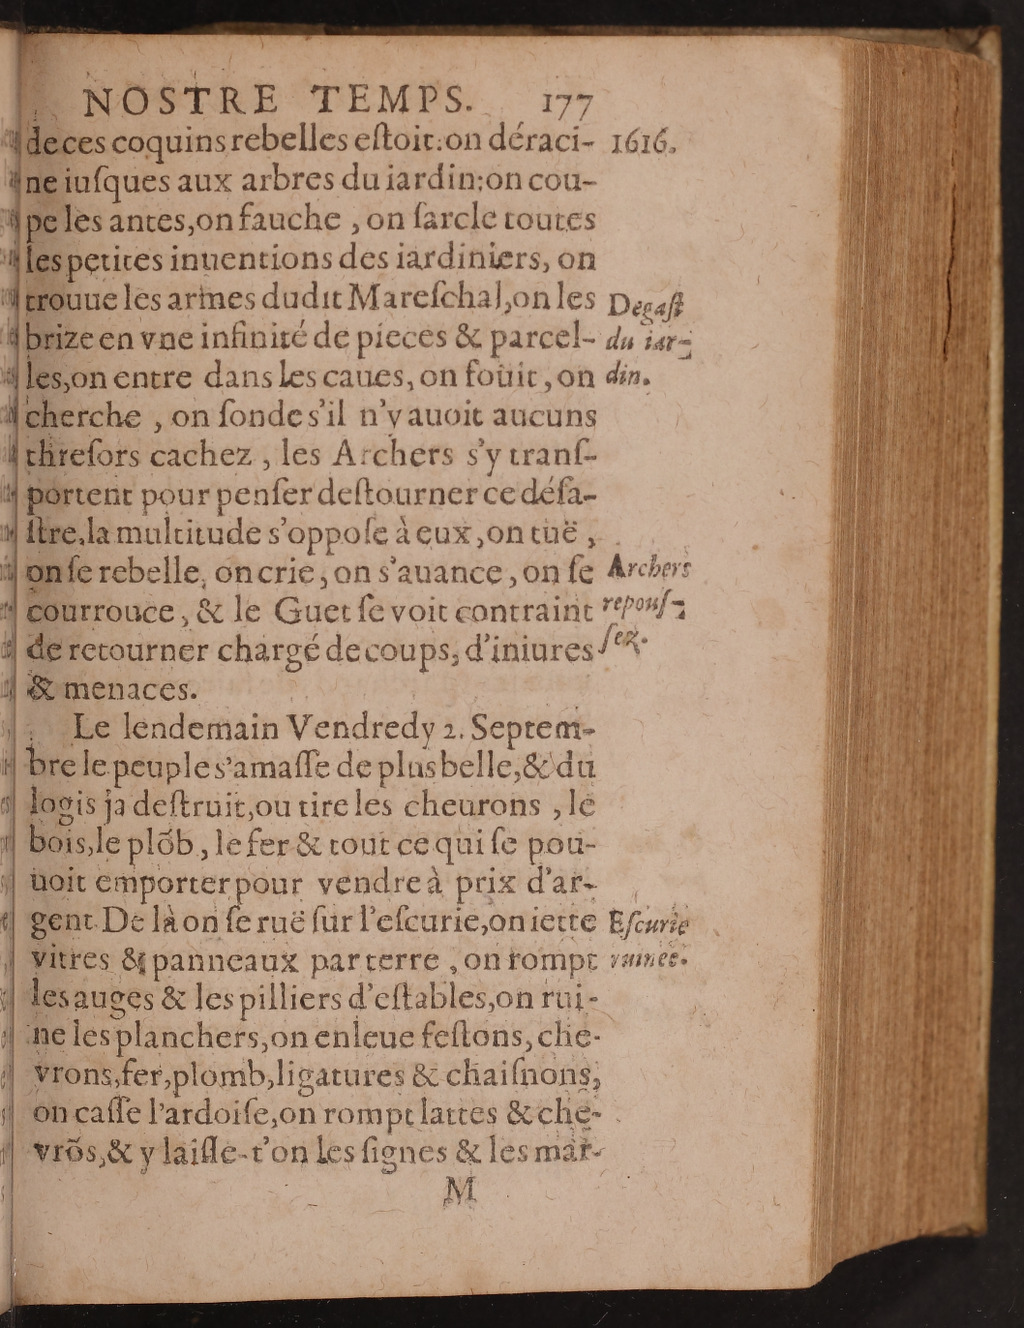 NOSTRE TEMPS. 177
de ces coquins rebelles eſtoit: on déraci- 1616.
ne iuſques aux arbres du iardin: on cou-
pe les antes, on fauche, on ſarcle toutes
les petites inuentions des iardiniers, on
trouue les armes dudit Mareſchal, on les
Degaſt
brize en vne infinité de pieces & parcel-
du iar-
les, on entre dans les caues, on foüit, on
din.
cherche, on ſonde s'il n'y auoit aucuns
threſors cachez, les Archers s'y tranſ-
portent pour penſer deſtourner ce déſa-
ſtre, la multitude s'oppoſe à eux, on tuë,
on ſe rebelle, on crie, on s'auance, on ſe
Archers
courrouce, & le Guet ſe voit contraint
repouſ-
de retourner chargé de coups, d'iniures
ſez.
& menaces.
Le lendemain Vendredy 2. Septem-
bre le peuple s'amaſſe de plus belle, & du
logis ja deſtruit, ou tire les cheurons, le
bois, le plõb, le fer & tout ce qui ſe pou-
uoit emporter pour vendre à prix d'ar-
gent. De là on ſe ruë ſur l'eſcurie, on iette
Eſcurie
vitres & panneaux par terre, on rompt
ruinee.
les auges & les pilliers d'eſtables, on rui-
ne les planchers, on enleue feſtons, che-
vrons, fer, plomb, ligatures & chaiſnons,
on caſſe l'ardoiſe, on rompt lattes & che-
vrõs, & y laiſſe-t'on les ſignes & les mar-
M